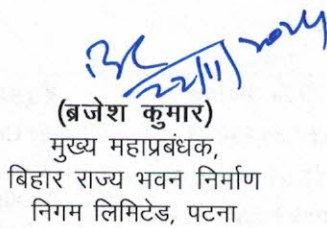 22/11/2024
(ब्रजेश कुमार)
मुख्य महाप्रबंधक,
बिहार राज्य भवन निर्माण
निगम लिमिटेड, पटना